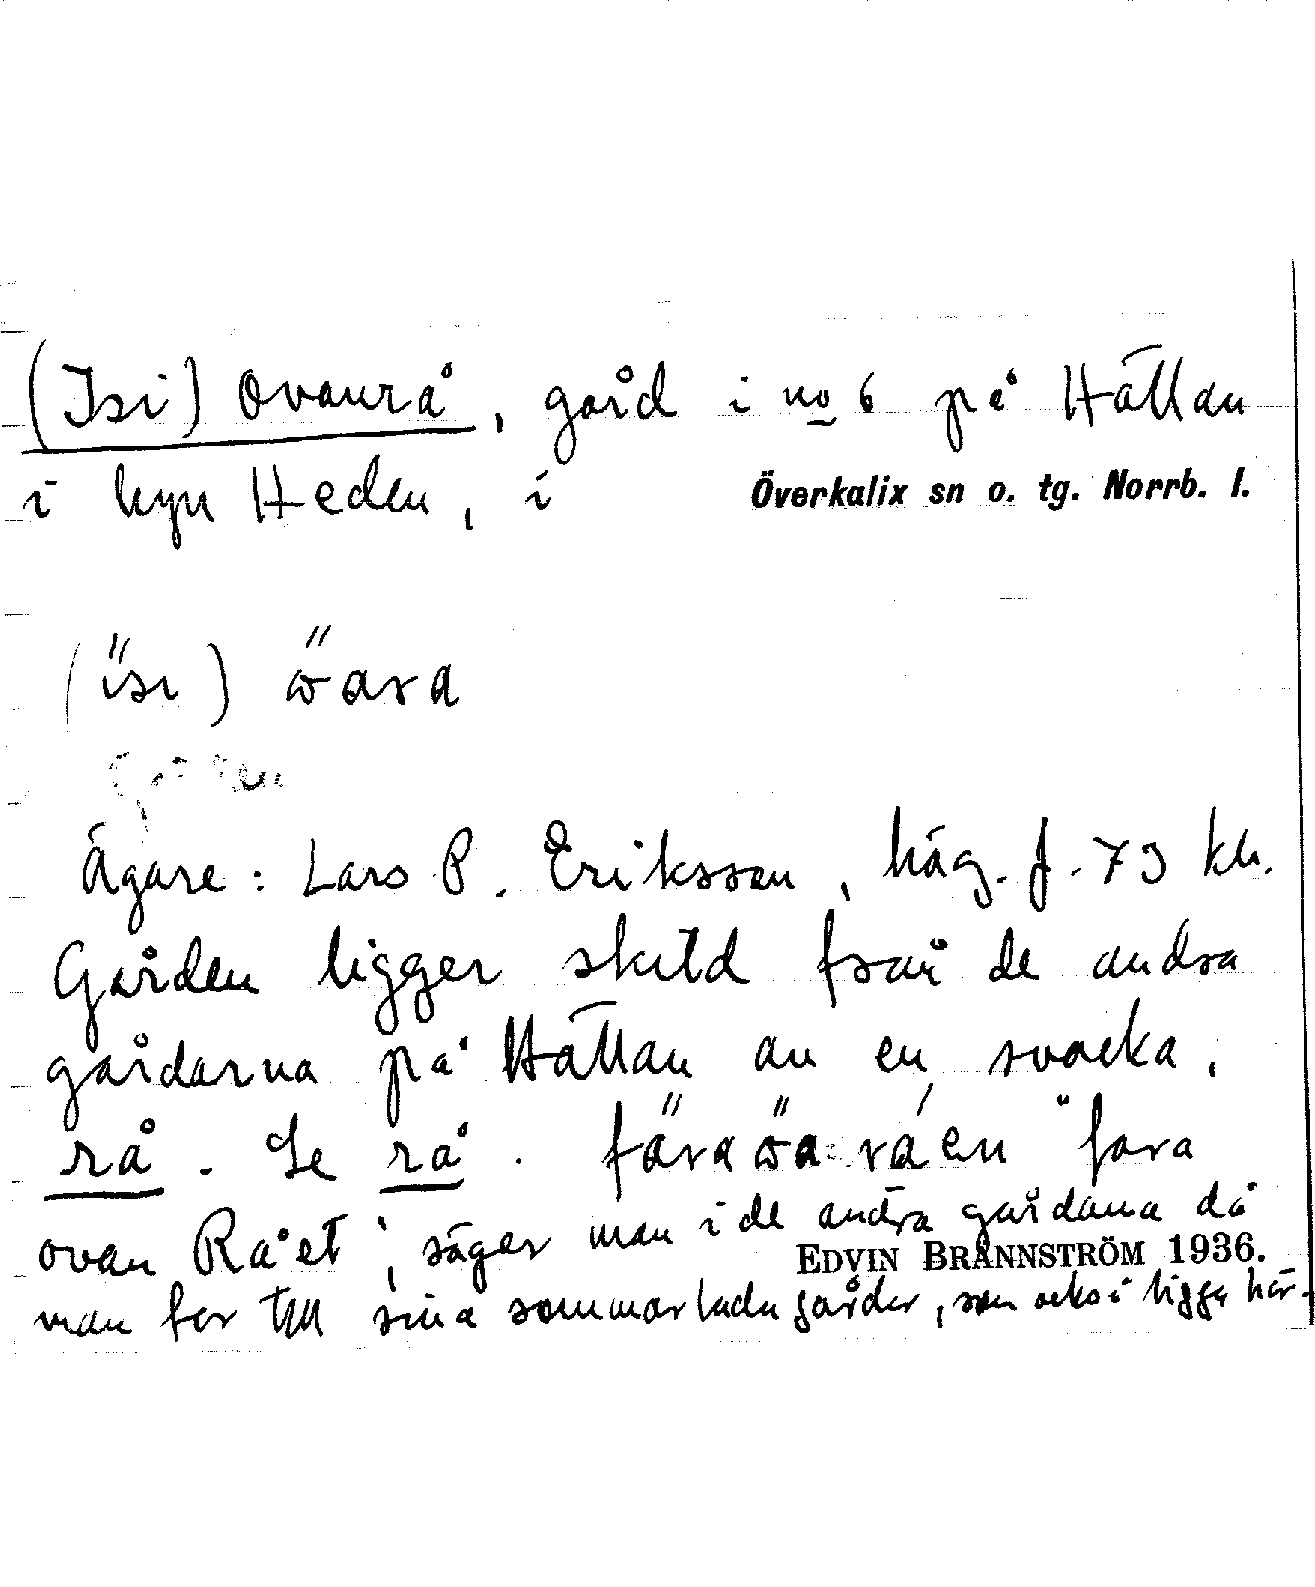 (Isi) Ovanrå, gård i no 6 på Hällan
i byn Heden, i Överkalix sn o. tg. Norrb. l.
Ägare: Lars P. Eriksson, häg. f. 73 kh.
Gården ligger skild från de andra
gårdarna på Hällan av en svacka,
rå. Se rå. "fara
ovan Rået", säger man i de andra gårdarna då
EDVIN BRÄNNSTRÖM 1936.
man far till sina sommarladugårdar, som också ligga här.